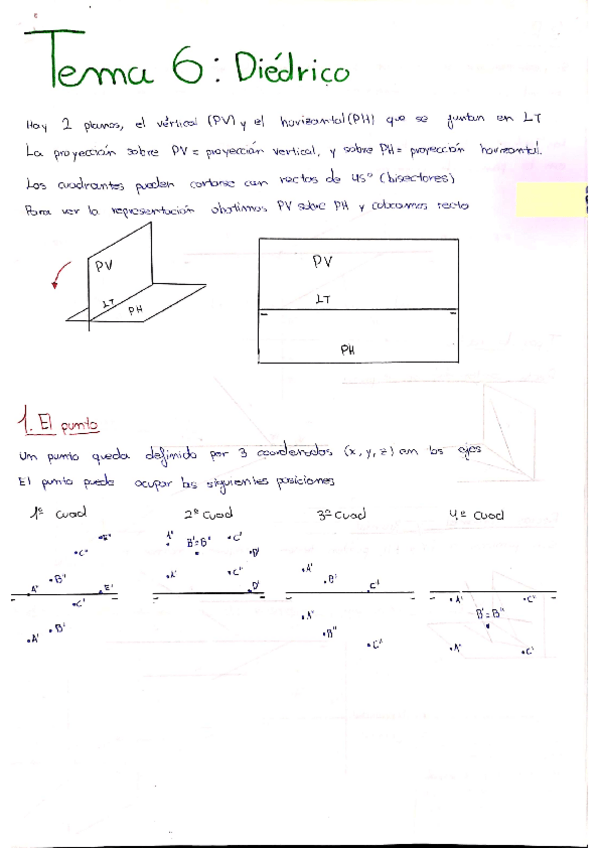 Tema 6: Diédrico
Hay 2 planos, el vértical (PV) y el horizontal (PH) que se juntan en LT
La proyección sobre PV = proyección vertical, y sobre PH = proyección horizontal.
Los cuadrantes pueden cortarse con rectas de 45º (bisectores)
Para ver la representación abatimos PV sobre PH y colocamos recto
PV
LT
PH
PV
LT
PH
1. El punto
Un punto queda definido por 3 coordenadas (x, y, z) con los ejes
El punto puede ocupar las siguientes posiciones
1º cuad
2º cuad
3º cuad
4º cuad
E''
C''
B''
A''
E'
C'
B'
A'
A''
B'=B''
C'
D'
A'
C''
D'
A'
B'
C'
A'
B''
C''
A'
C'
B'=B''
A''
C'